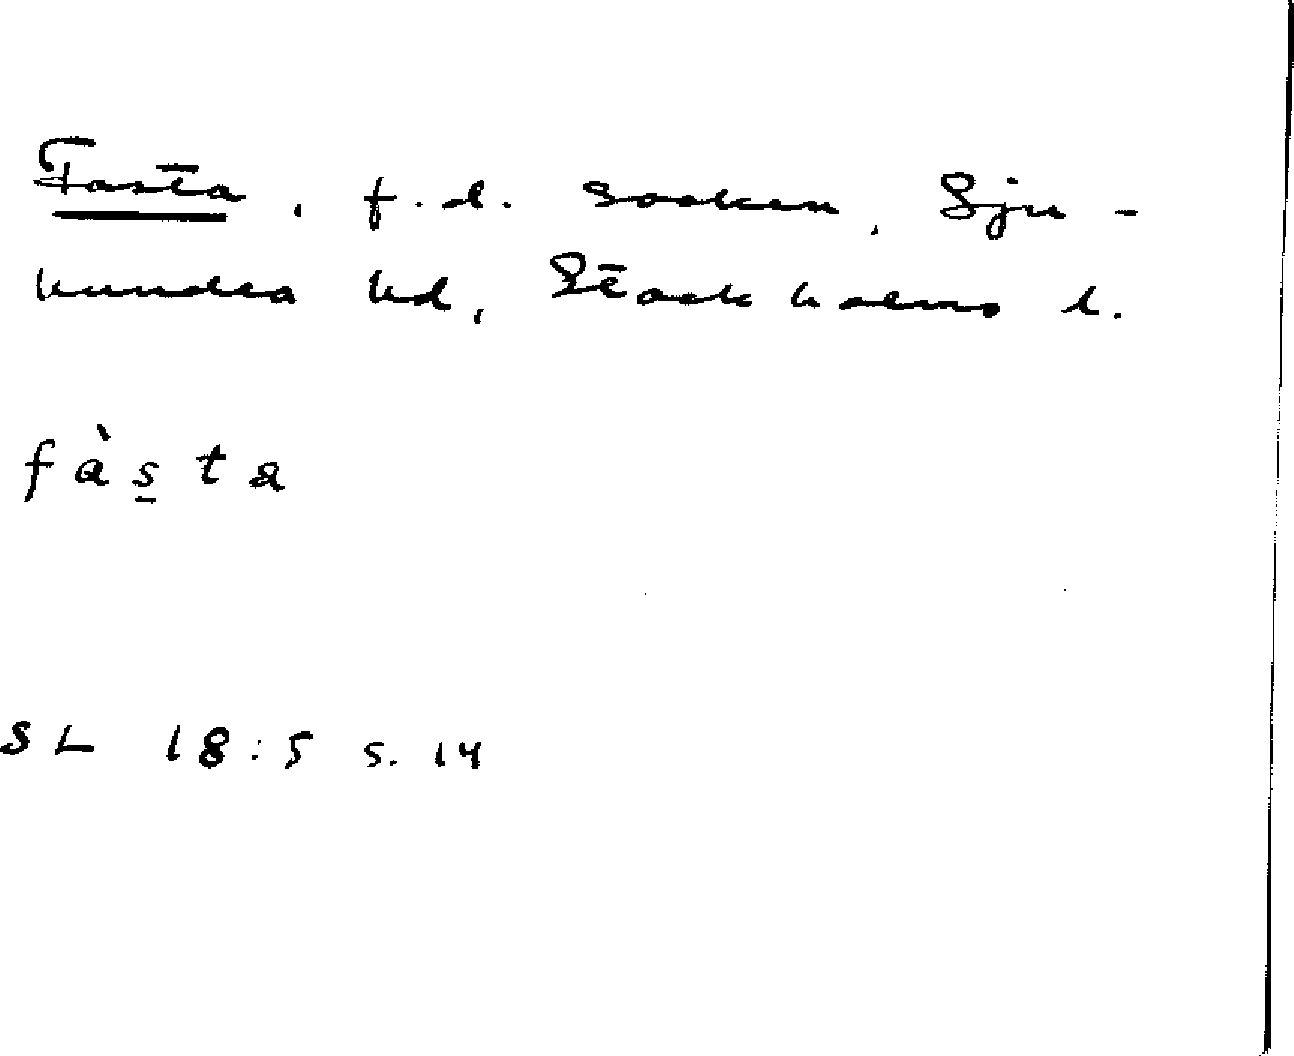 Fasta, f.d. socken, Sju-
hundra hd, Stockholms l.
fàs̱ta
SL 18:5 s. 14